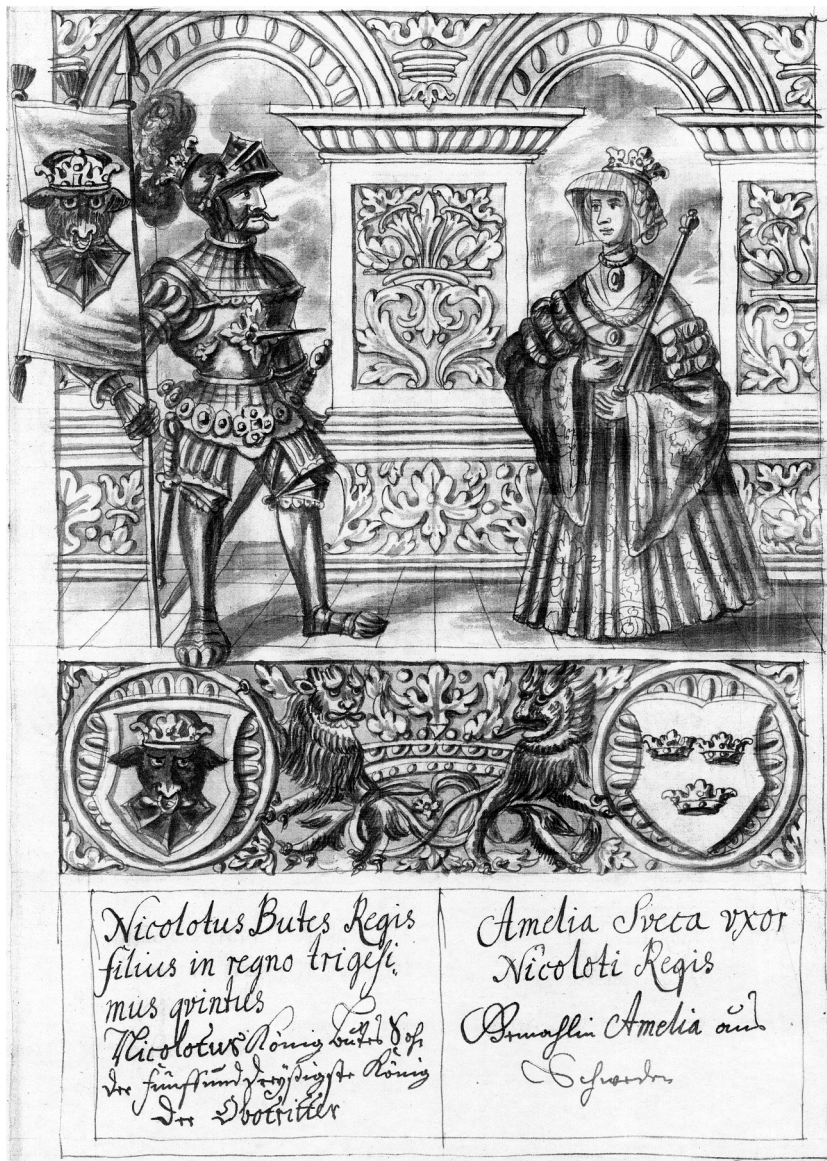 Nicolotus Butes Regis
filius in regno trigesi,
mus qvintus
Nicolotus König Butes Soh
der fünffunddreyßigste König
der Obotritter
Amelia Sveca vxor
Nicoloti Regis
Gemahlin Amelia auß
Schweden